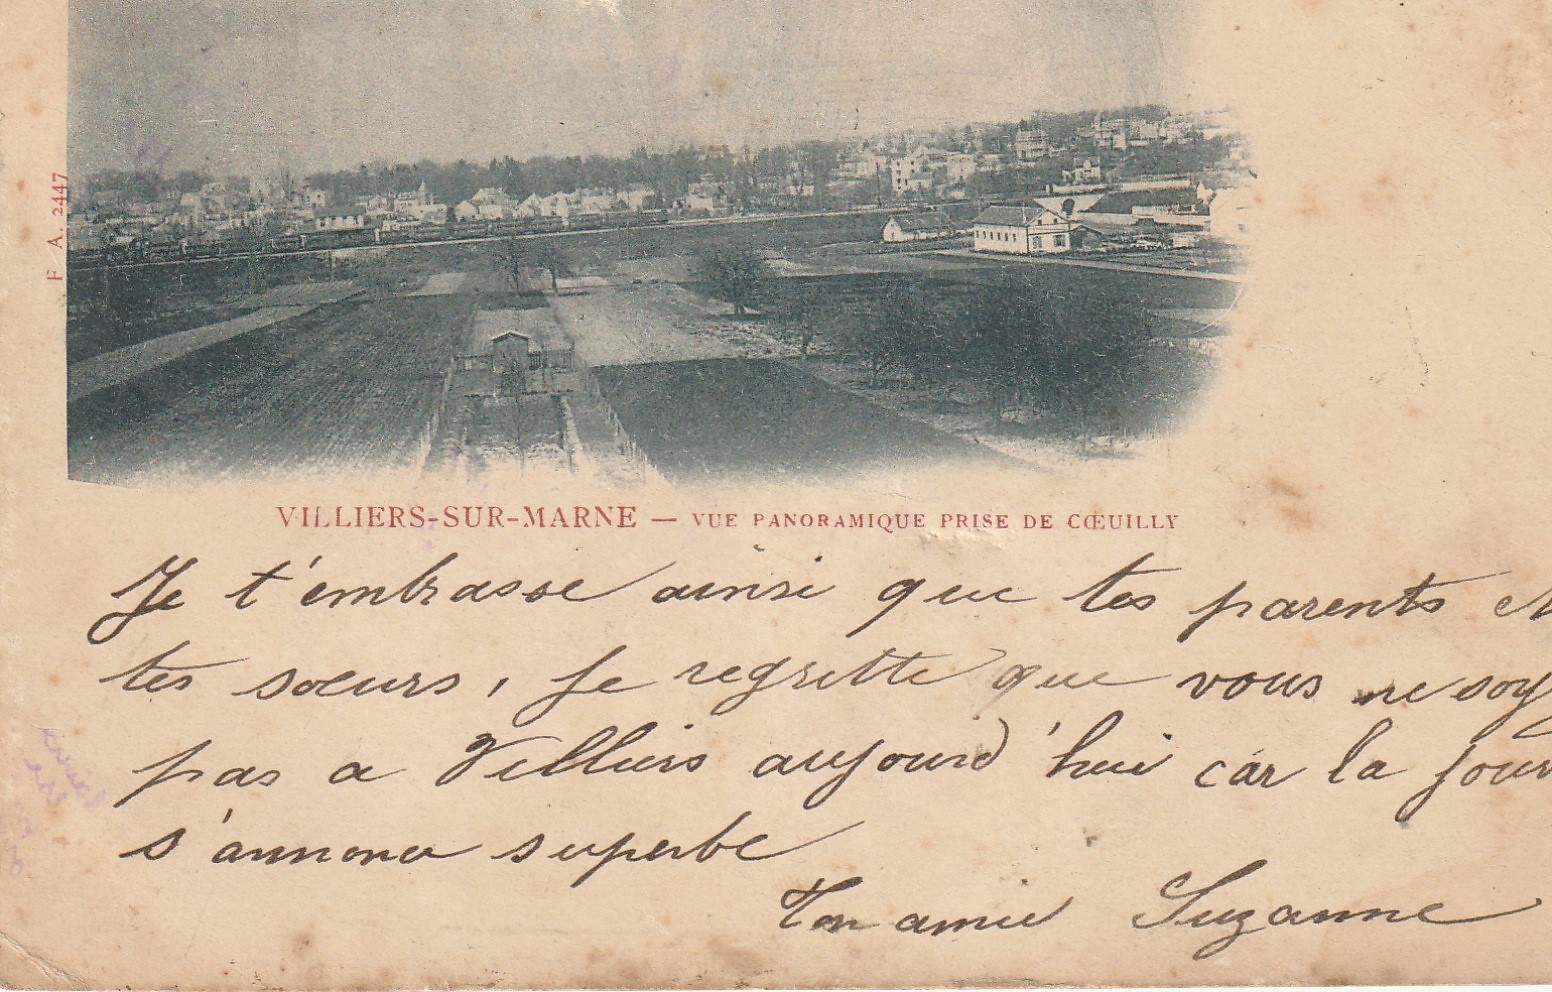 F. A. 2447
VILLIERS-SUR-MARNE — VUE PANORAMIQUE PRISE DE CŒUILLY
Je t'embrasse ainsi que tes parents et
tes soeurs, je regrette que vous ne soy
pas a Villiers aujourd'hui car la jour
s'annonce superbe
Ton amie Suzanne